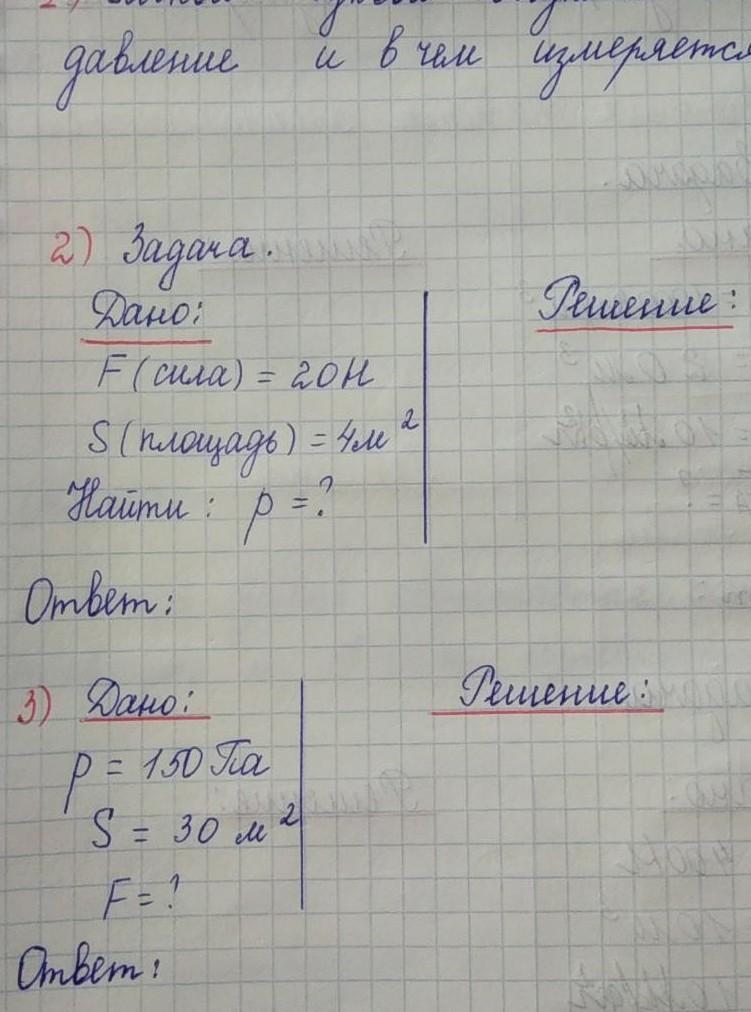 давление и в чем измеряется
2) Задача.
Дано: Решение:
F (сила) = 20Н
S (площадь) = 4м²
Найти: p = ?
Ответ:
3) Дано: Решение:
p = 150 Па
S = 30 м²
F = ?
Ответ: